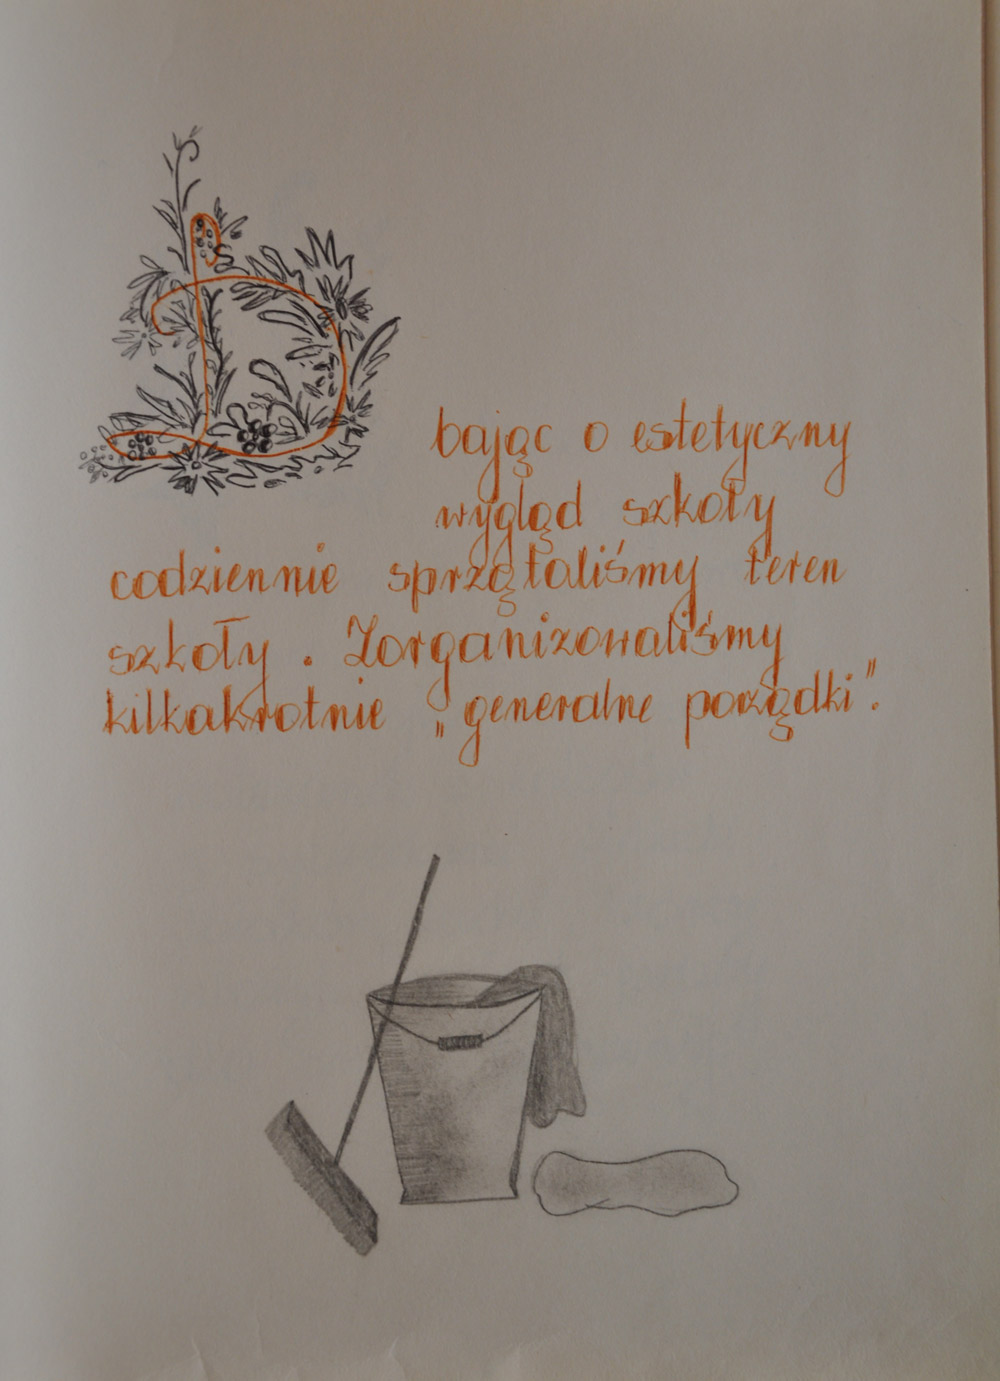 Dbając o estetyczny
wygląd szkoły
codziennie sprzątaliśmy teren
szkoły. Zorganizowaliśmy
kilkakrotnie „generalne porządki".